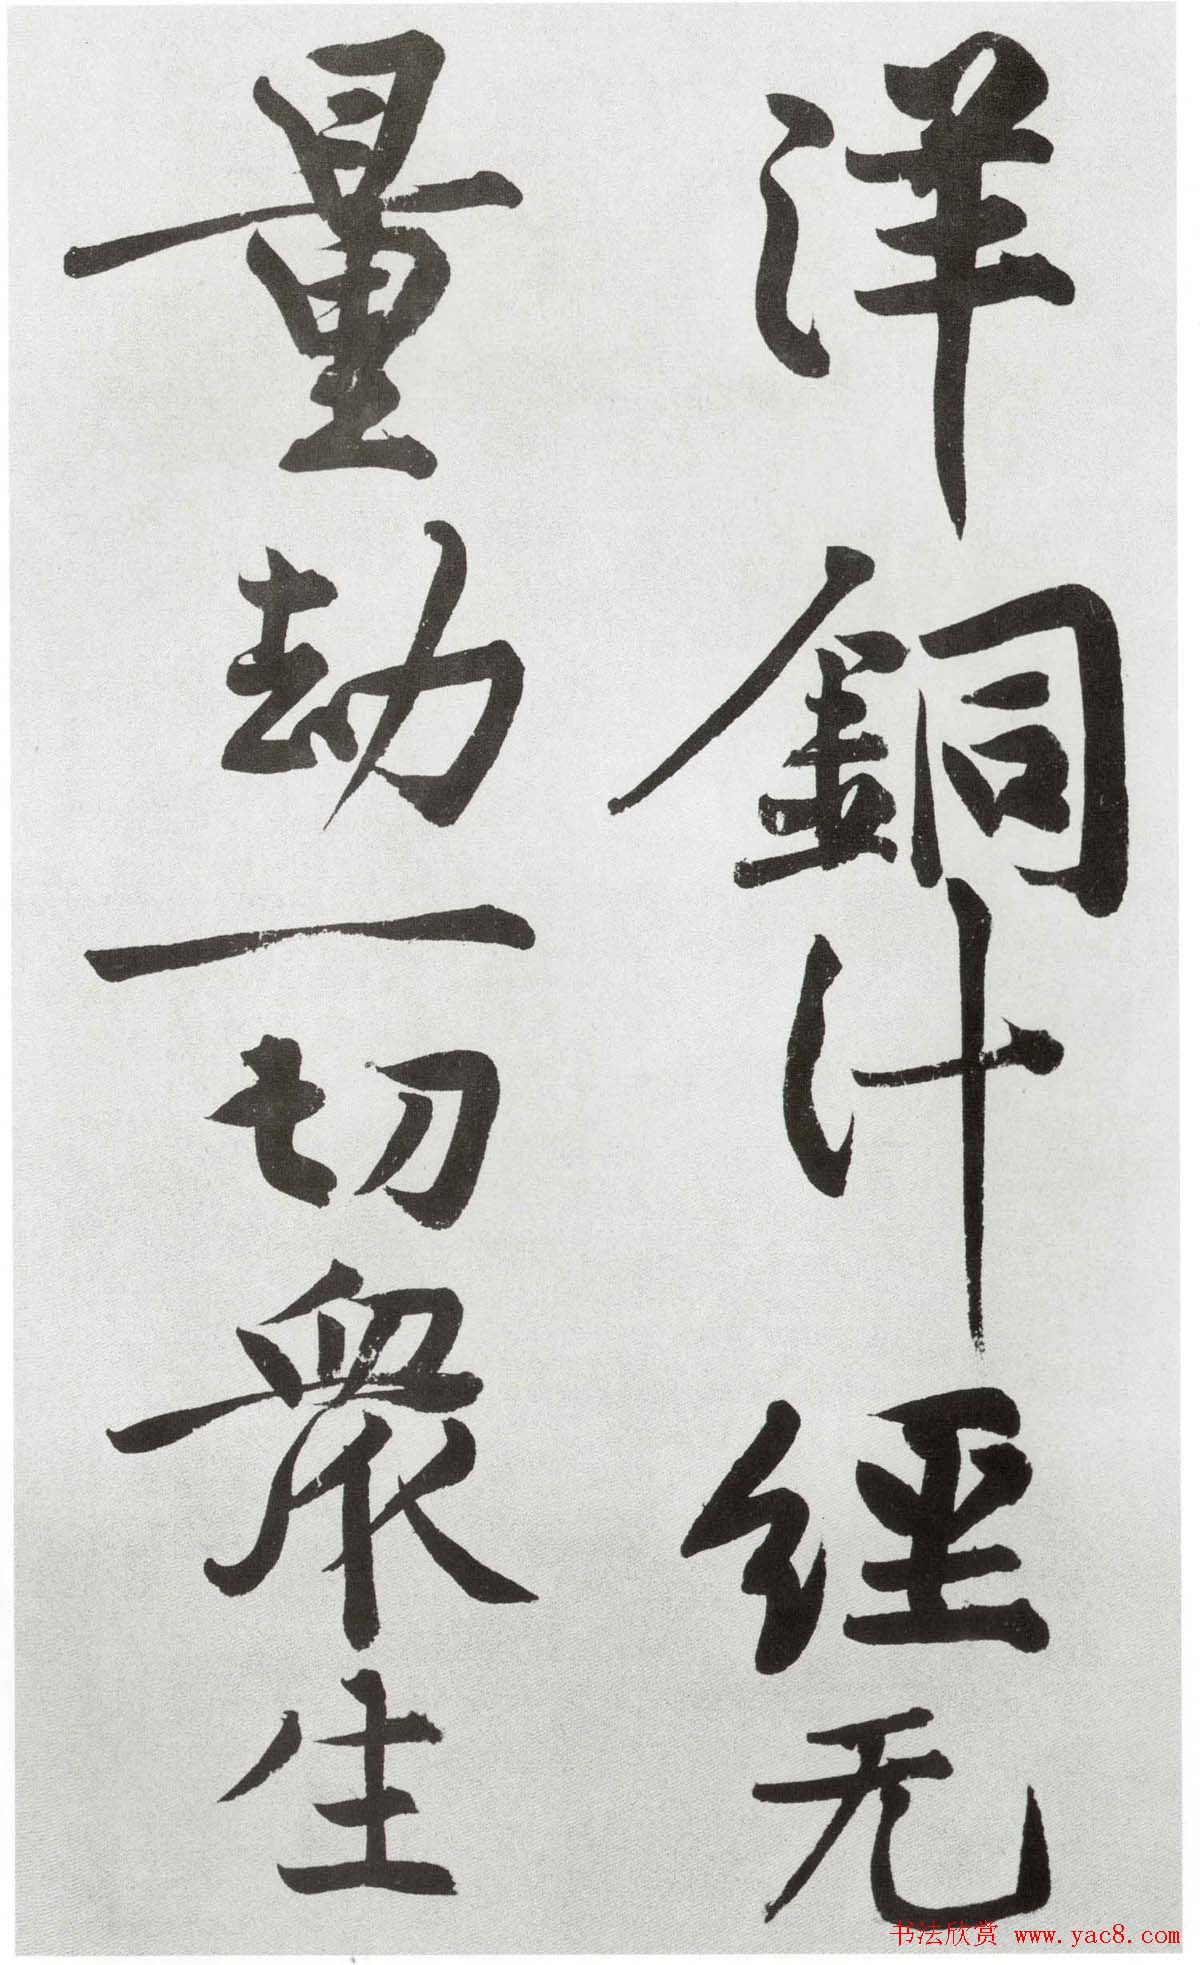 洋銅汁經无
量劫一切衆生
书法欣赏 www.yac8.com